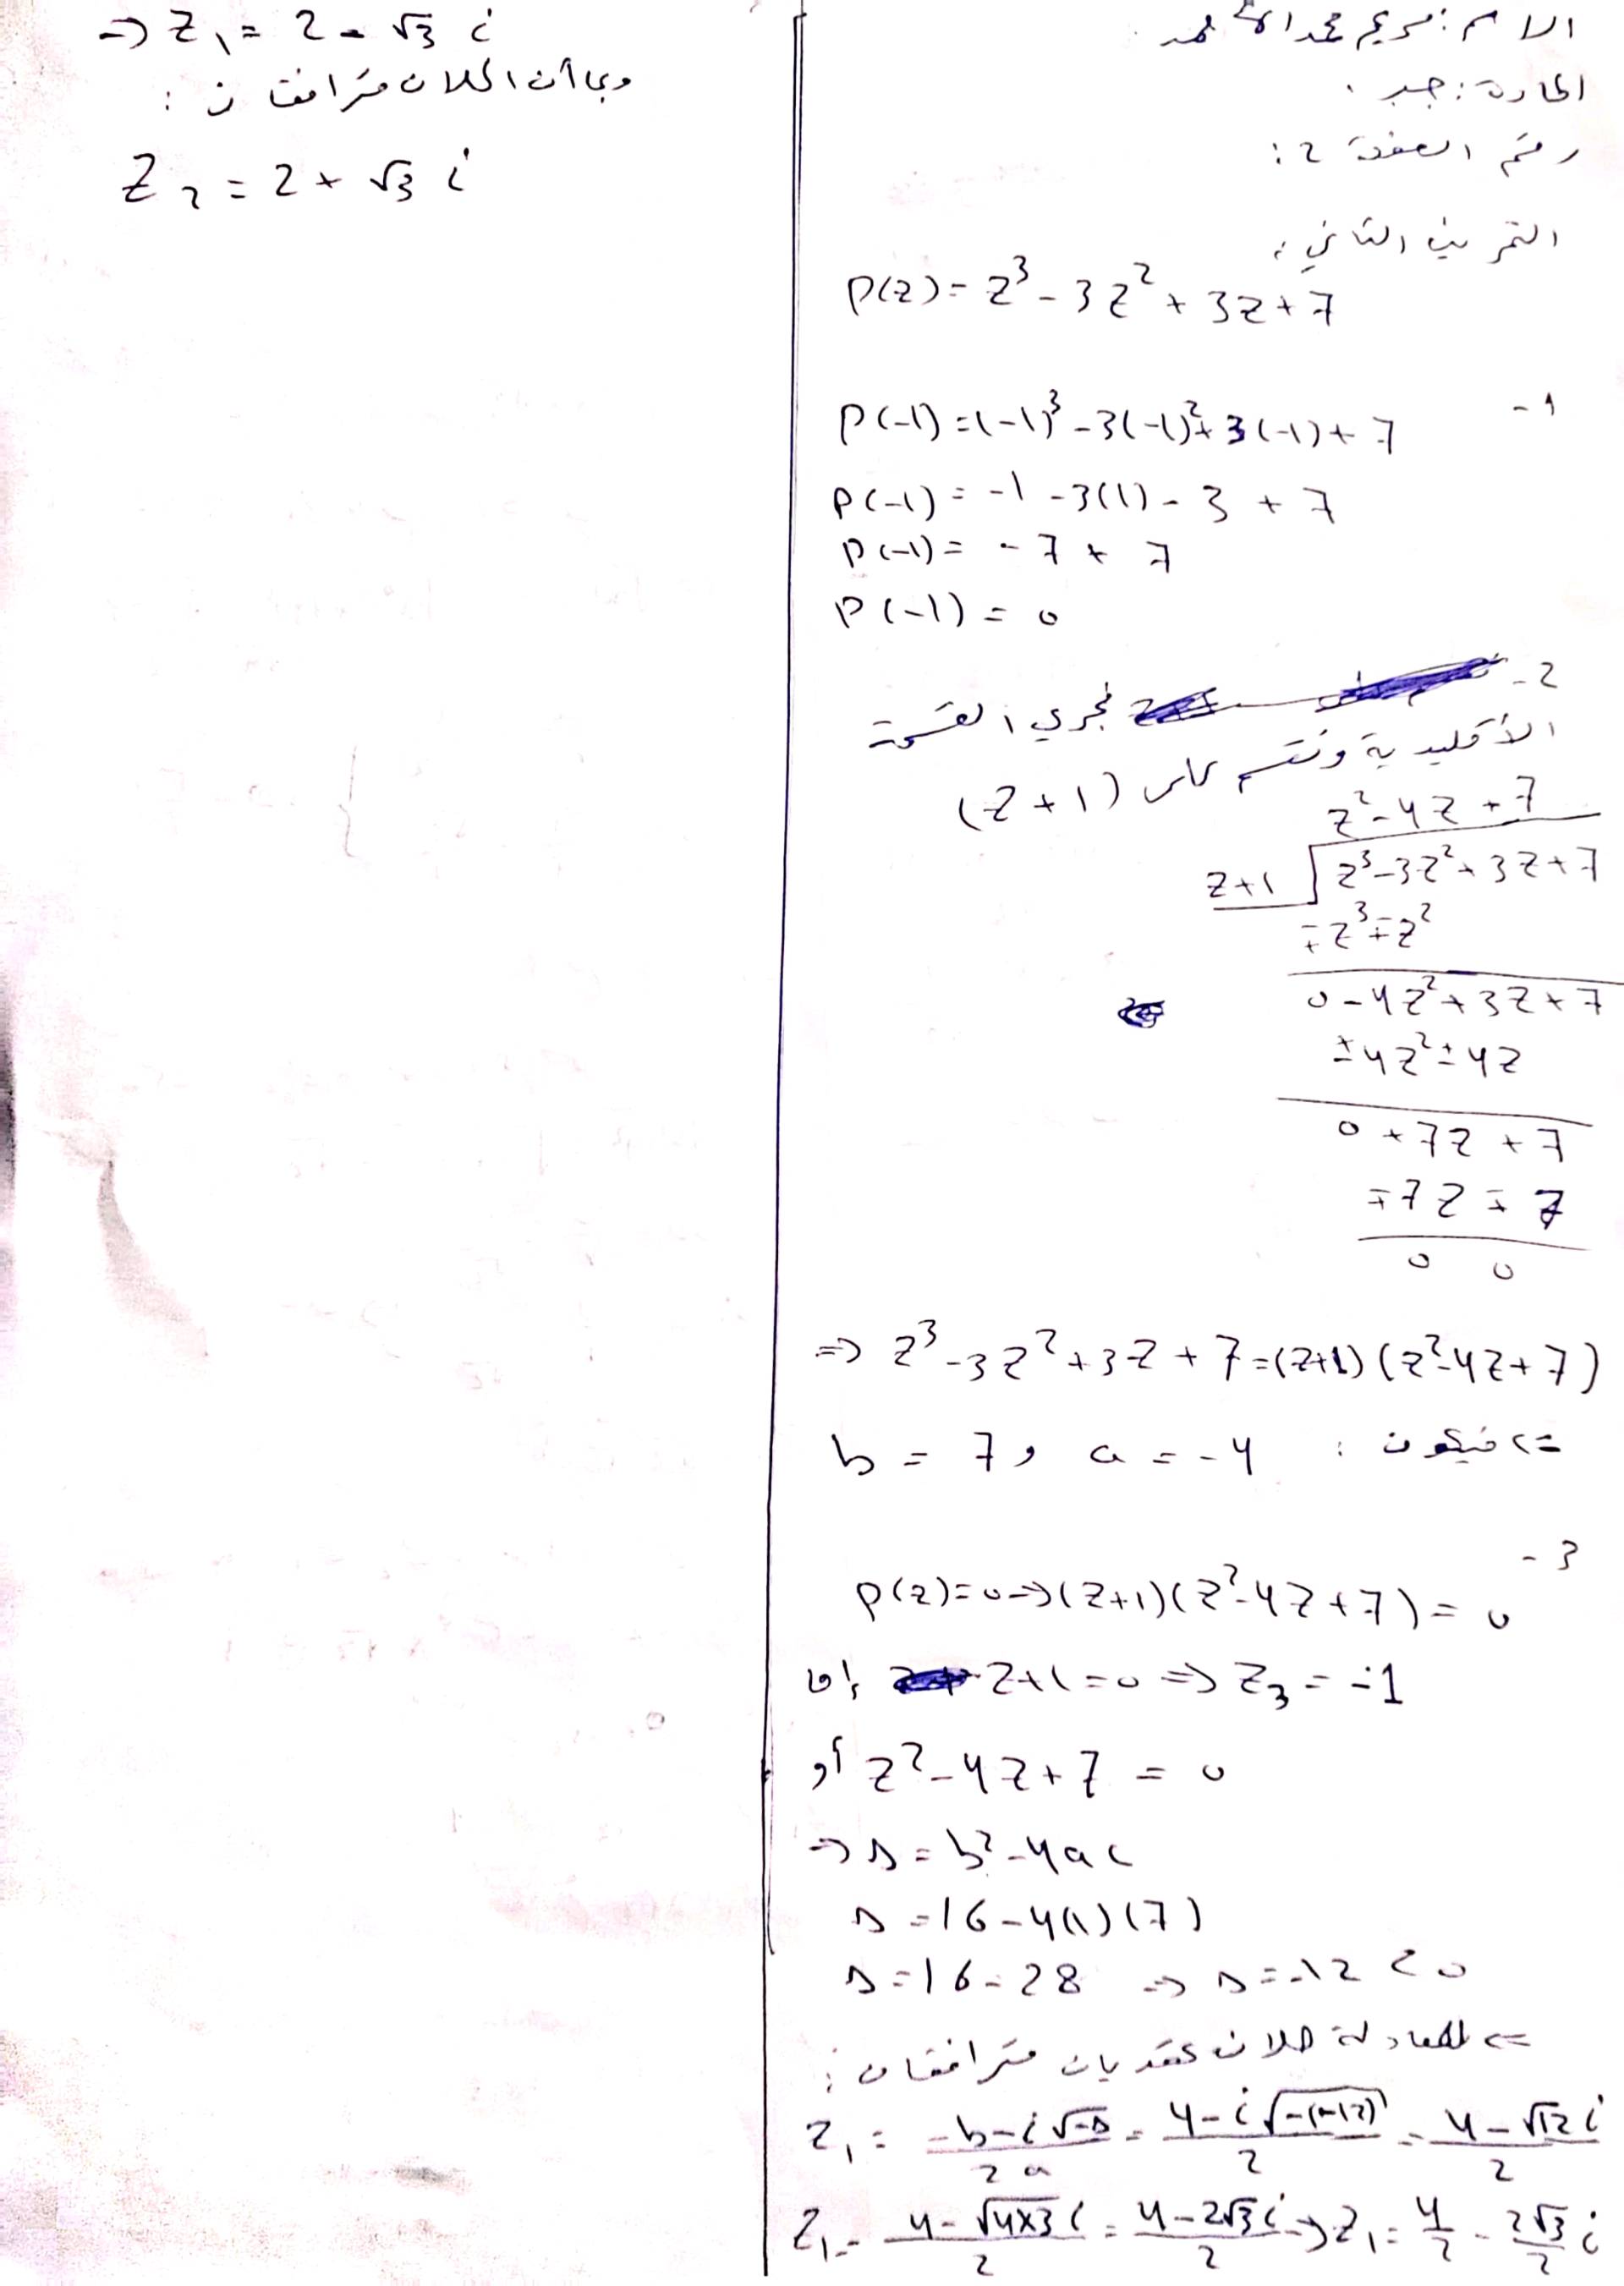 الاسم: مريم محمد الأحمد.
المادة: جبر.
رقم الصفحة 2:
التمرين الثاني:
P(z) = z³ - 3z² + 3z + 7
1 -
P(-1) = (-1)³ - 3(-1)² + 3(-1) + 7
P(-1) = -1 - 3(1) - 3 + 7
P(-1) = - 7 + 7
P(-1) = 0
2 - نجري القسمة
الأقليدية ونقسم على (z+1)
z² - 4z + 7
z+1 z³ - 3z² + 3z + 7
∓z³ ∓ z²
0 - 4z² + 3z + 7
±4z² ± 4z
0 + 7z + 7
∓7z ∓ 7
0 0
=> z³ - 3z² + 3z + 7 = (z+1)(z² - 4z + 7)
<= فيكون : a = -4 , b = 7
3 -
P(z) = 0 => (z+1)(z² - 4z + 7) = 0
إما z+1 = 0 => z₃ = -1
أو z² - 4z + 7 = 0
=> Δ = b² - 4ac
Δ = 16 - 4(1)(7)
Δ = 16 - 28 => Δ = -12 < 0
<= للمعادلة حلان عقديان مترافقان :
z₁ = (-b - i√-Δ)/2a = (4 - i√-(-12))/2 = (4 - √12 i)/2
z₁ = (4 - √4×3 i)/2 = (4 - 2√3 i)/2 => z₁ = 4/2 - 2√3/2 i
=> z₁ = 2 - √3 i
وبما أن الحلان مترافقان :
z₂ = 2 + √3 i